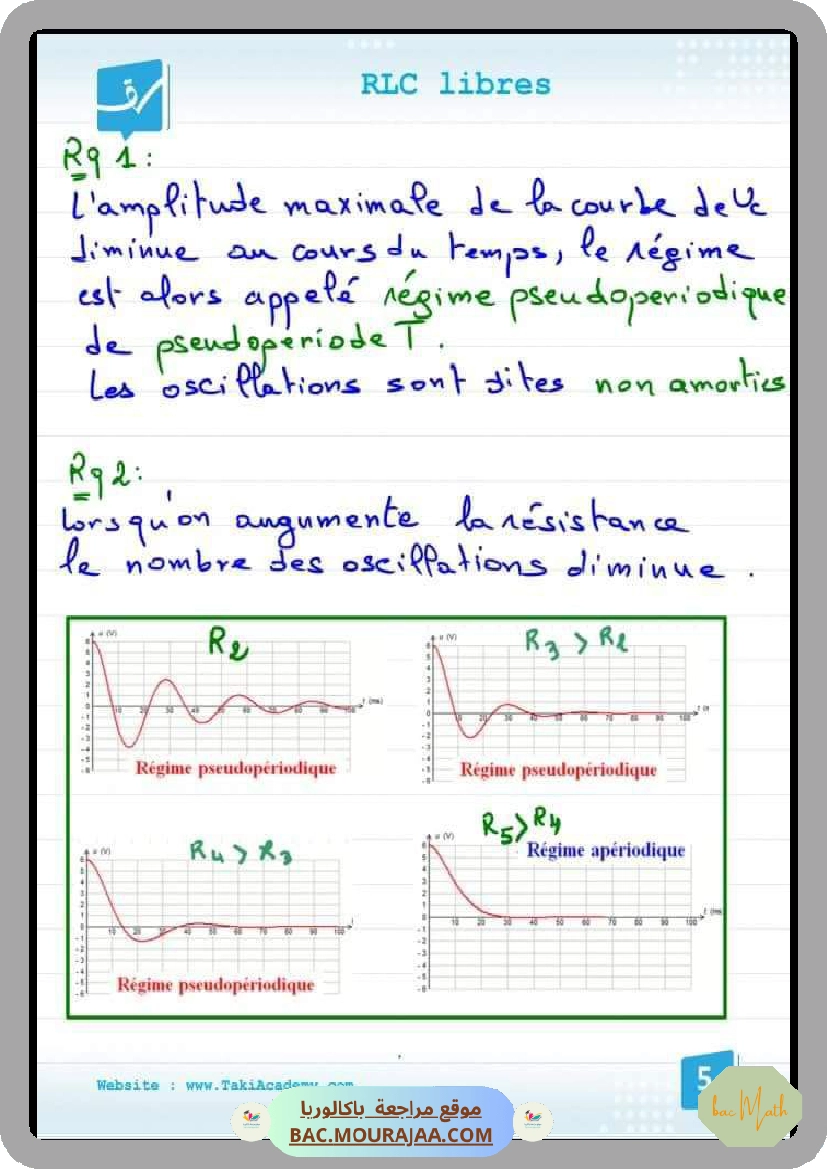 RLC libres
Rq 1 :
L'amplitude maximale de la courbe de Uc
diminue au cours du temps, le régime
est alors appelé régime pseudoperiodique
de pseudoperíode T.
Les oscillations sont dites non amorties
Rq 2 :
Lorsqu'on angumente la résistance
le nombre des oscillations diminue .
R2
R3 > R2
Régime pseudopériodique
Régime pseudopériodique
R4 > R3
R5 > R4
Régime apériodique
Régime pseudopériodique
Website : www.TakiAcademy.com
5
موقع مراجعة باكالوريا
BAC.MOURAJAA.COM
bac Math